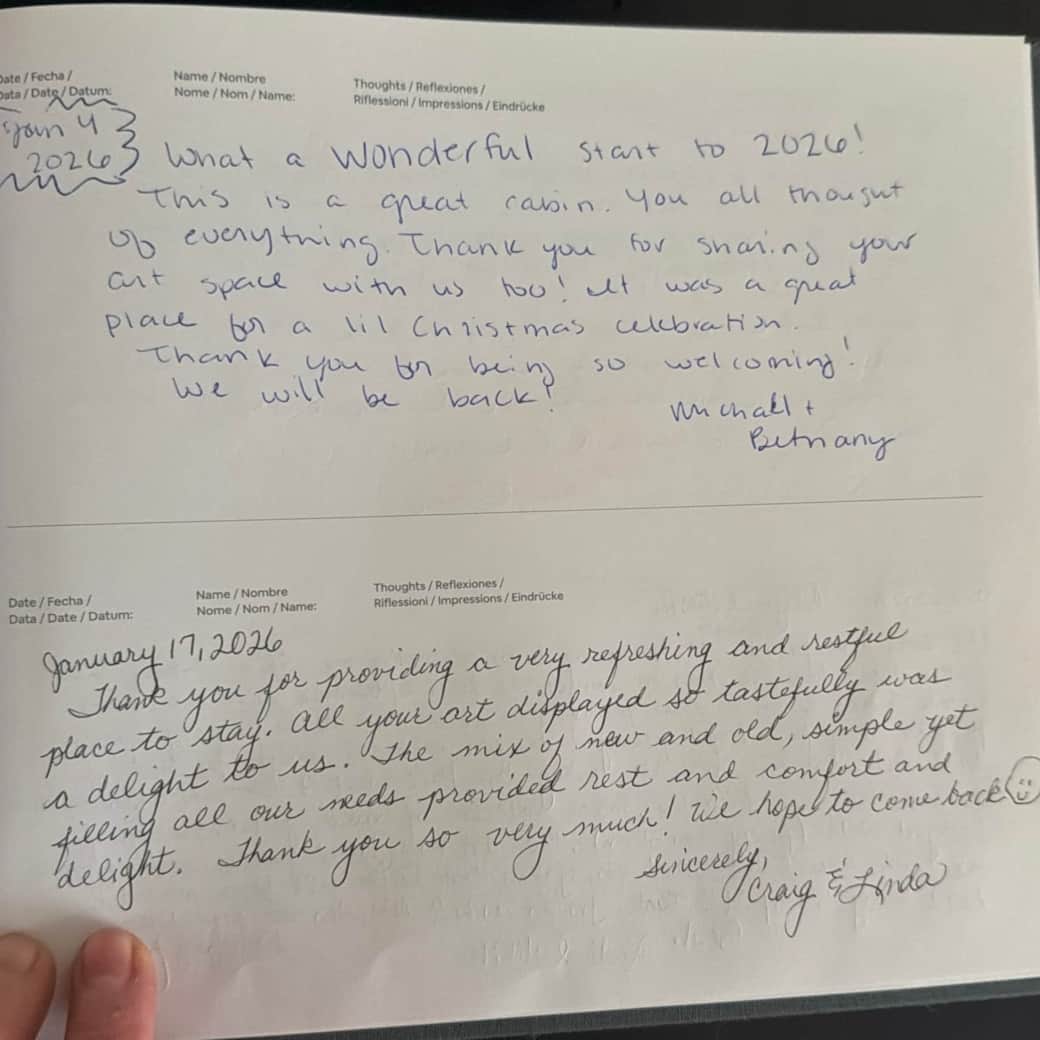 Date / Fecha /
Data / Date / Datum:
Name / Nombre
Nome / Nom / Name:
Thoughts / Reflexiones /
Riflessioni / Impressions / Eindrücke
Jan 4
2026
What a wonderful start to 2026!
This is a great cabin. You all thought
of everything. Thank you for sharing your
art space with us too! It was a great
place for a lil Christmas celebration.
Thank you for being so welcoming!
We will be back!
Michael +
Bethany
Date / Fecha /
Data / Date / Datum:
Name / Nombre
Nome / Nom / Name:
Thoughts / Reflexiones /
Riflessioni / Impressions / Eindrücke
January 17, 2026
Thank you for providing a very refreshing and restful
place to stay. All your art displayed so tastefully was
a delight to us. The mix of new and old, simple yet
filling all our needs provided rest and comfort and
delight. Thank you so very much! We hope to come back
Sincerely,
Craig & Linda